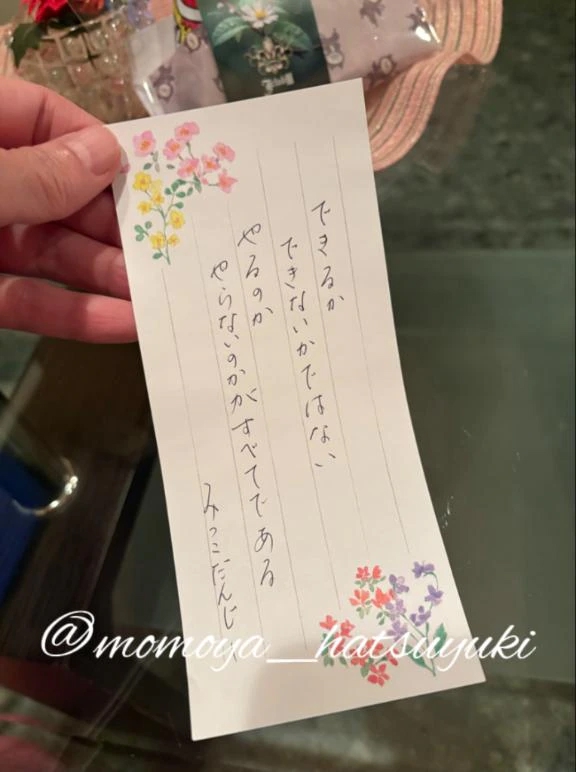 できるか
できないかではない
やるのか
やらないのかがすべてである
みっこだんじ
@momoya__hatsuyuki